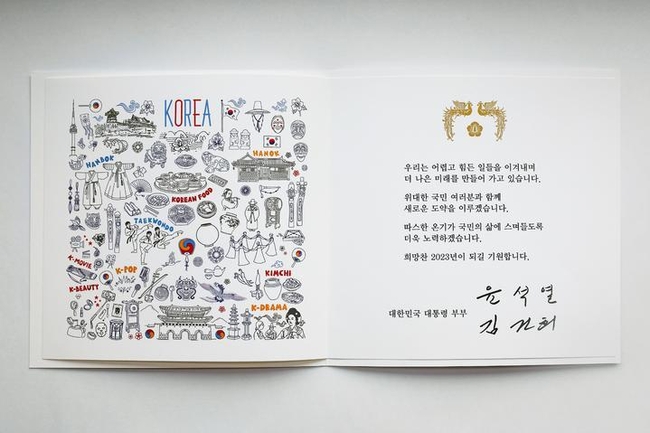 KOREA
HANBOK
HANOK
KOREAN FOOD
TAEKWONDO
K-MOVIE
K-POP
K-BEAUTY
KIMCHI
K-DRAMA
우리는 어렵고 힘든 일들을 이겨내며
더 나은 미래를 만들어 가고 있습니다.
위대한 국민 여러분과 함께
새로운 도약을 이루겠습니다.
따스한 온기가 국민의 삶에 스며들도록
더욱 노력하겠습니다.
희망찬 2023년이 되길 기원합니다.
대한민국 대통령 부부
윤석열
김건희